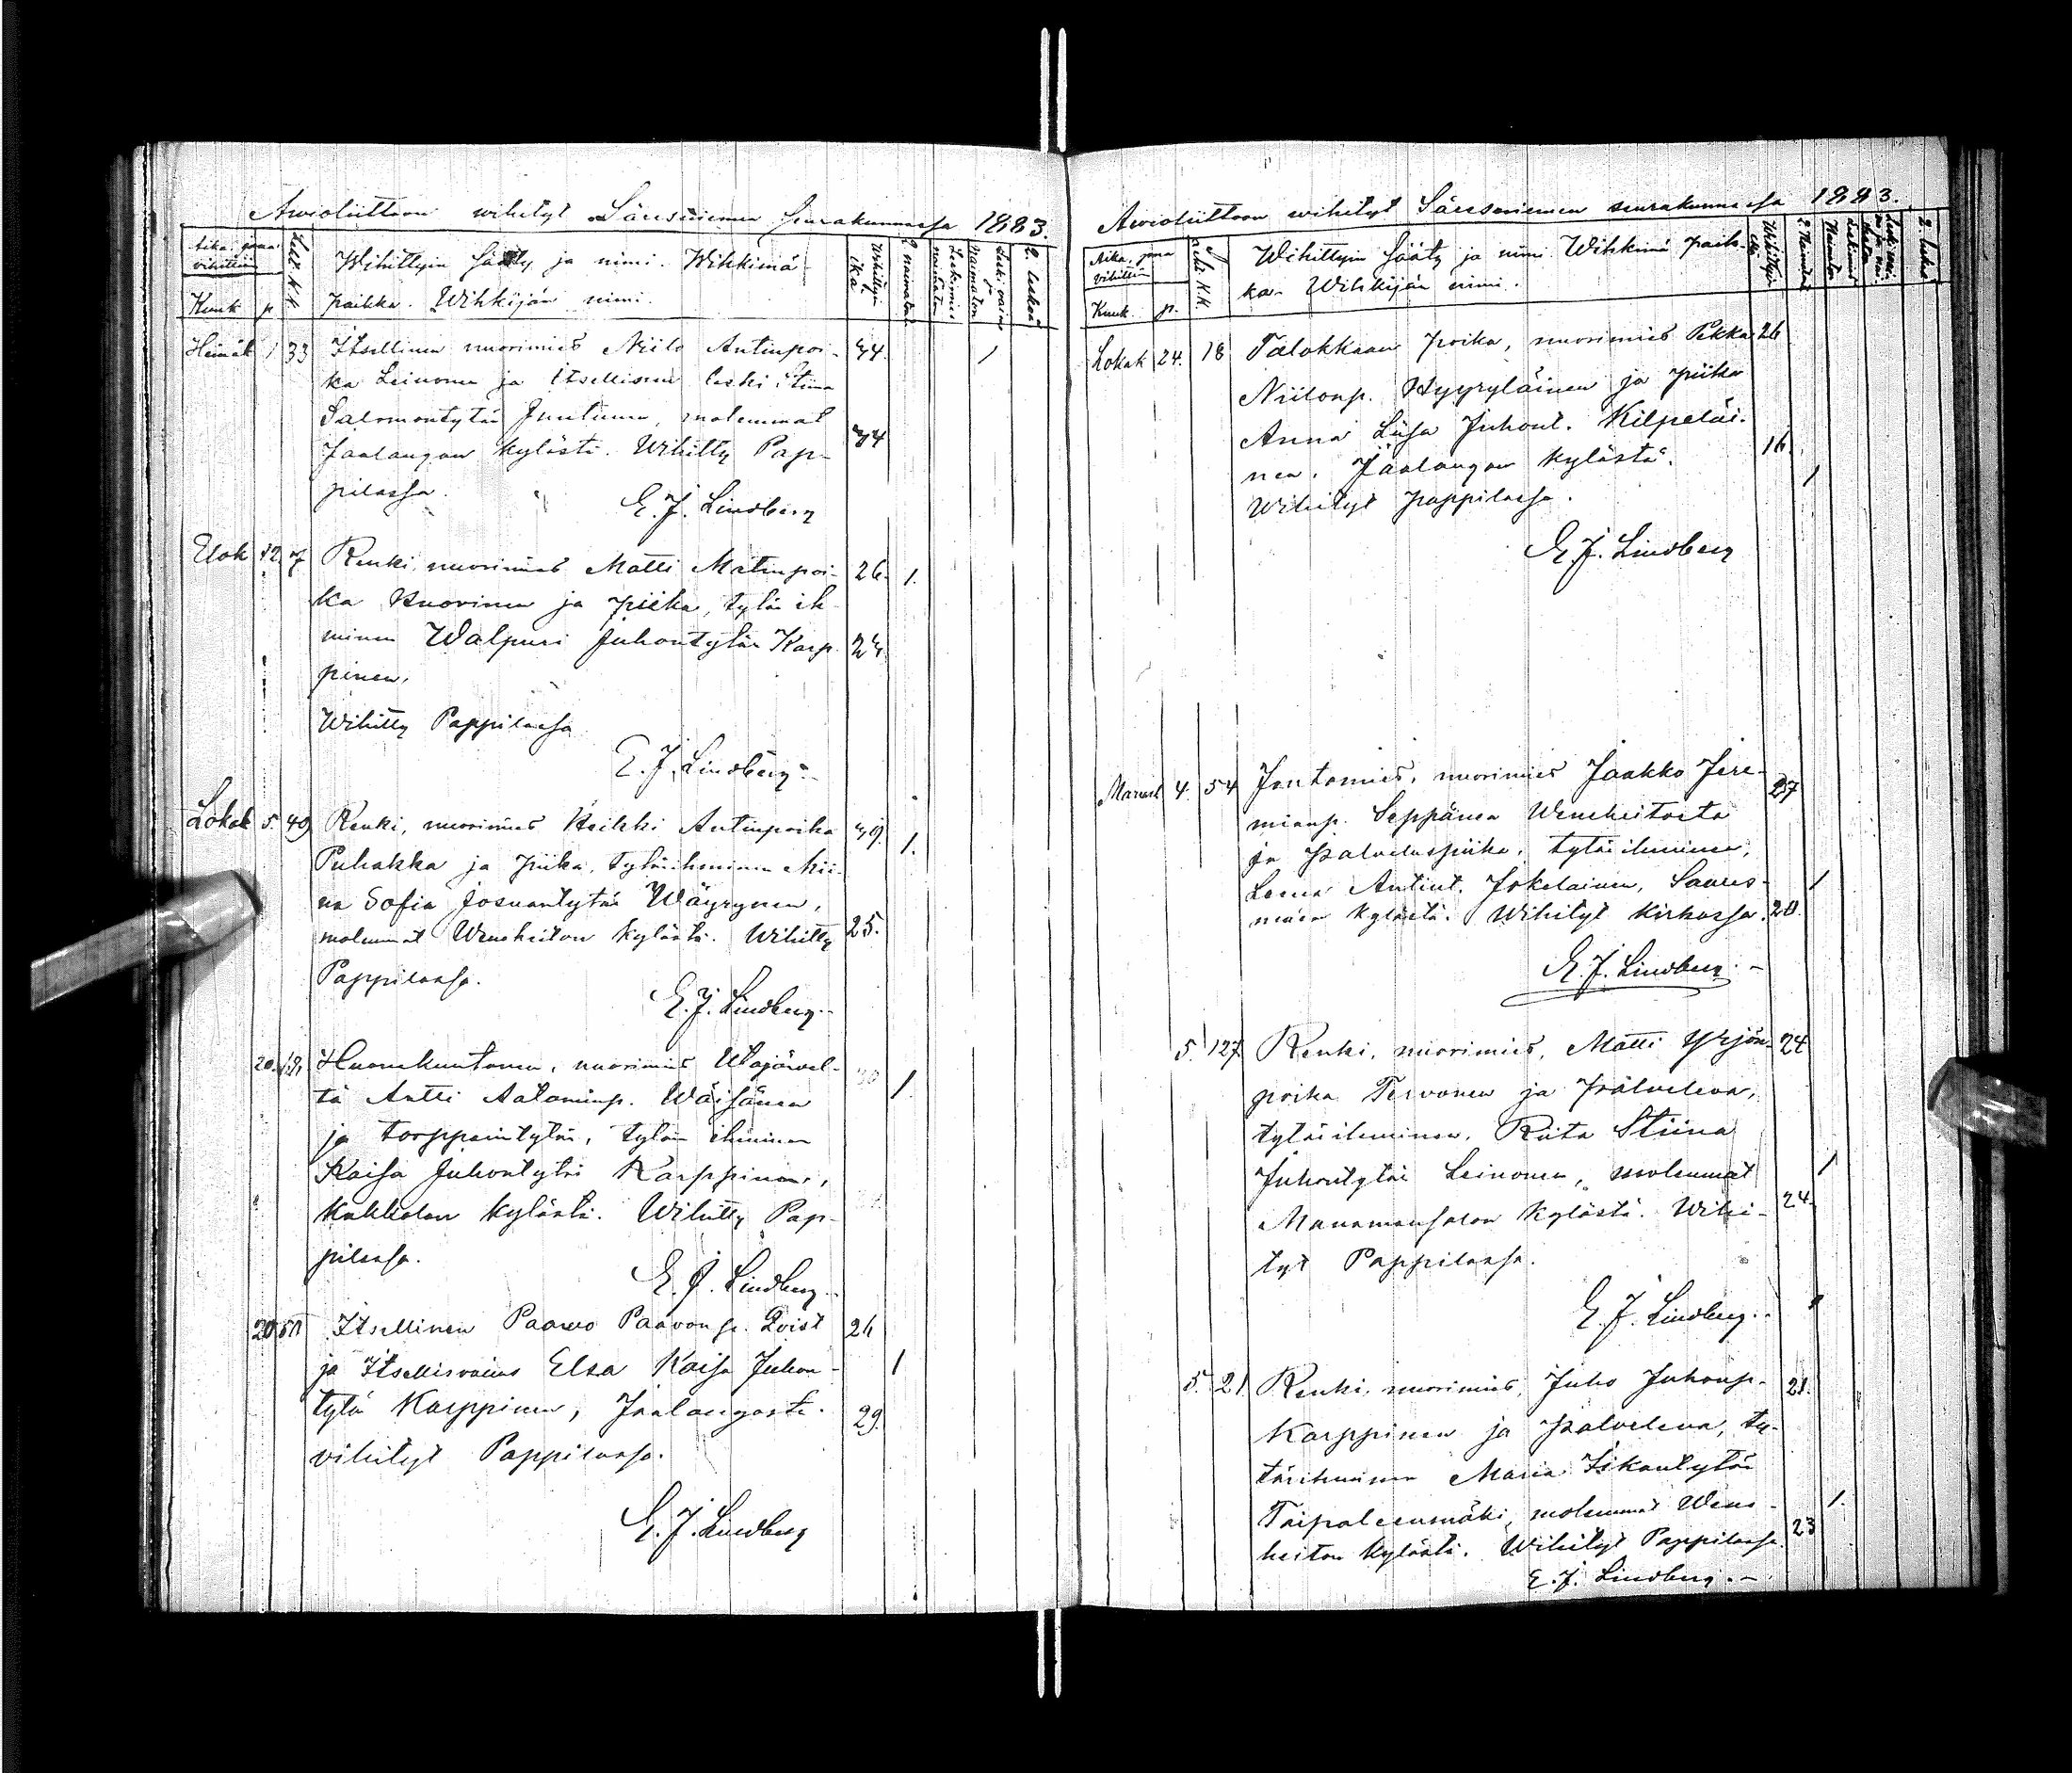 Awioliittoon wihityt Säresniemen seurakunnassa 1883.
Aika, jona vihittiin
Kuuk p
Wihittyin sääty ja nimi. Wihkimä-
paikka. Wihkijän nimi.
Wihittyin ikä
2 naimatonta
Leskimies ja naimaton
Leski vaimo ja Naimaton
2 leskeä
Heinäk 1 33 Itsellinen nuorimies Niilo Antinpoi- 44
ka Leinonen ja itsellisen leski Stina
Salomontytär Juntunen, molemmat 44
Jaalangan kylästä. Wihitty Pap-
pilassa.
E. J. Lindberg
Elok 12 7 Renki, nuorimies Matti Matinpoi- 26. 1.
ka Huovinen ja piika, tytär ih-
minen Walpuri Juhontytär Karp- 24
pinen.
Wihitty Pappilassa
E. J. Lindberg.-
Lokak 5. 49 Renki, nuorimies Heikki Antinpoika 49. 1.
Puhakka ja piika, tytärihminen Mii-
na Sofia Josuantytär Wäyrynen,
molemmat Weneheiton kylästä. Wihitty 25.
Pappilassa.
E. J. Lindberg.-
20. Huonekuntainen, nuorimies Utajärvel- 1.
tä Antti Aataminp. Wäisänen
ja torpparintytär, tytär ihminen
Kaisa Juhontytär Karppinen,
kylästä. Wihitty Pap-
pilassa.
E. J. Lindberg.-
20 Itsellinen Paavo Paavonp. Qvist 26
ja Itsellisvaimo Elsa Kaisa Juhon- 1
tytär Karppinen, Jaalangasta. 29.
vihityt Pappilassa.
E. J. Lindberg
Awioliittoon wihityt Säresniemen seurakunnassa 1883.
Aika, jona vihittiin
Kuuk. p.
Wihittyin sääty ja nimi. Wihkimä paik-
ka. Wihkijän nimi.
Wihittyin ikä
2 leskeä
Lokak 24. 18 Talokkaan poika, nuorimies Pekka 26
Niilonp. Hyyryläinen ja piika
Anna Liisa Juhont. Kilpeläi- 16.
nen. Jaalangan kylästä. 1
Wihityt pappilassa.
E. J. Lindberg
Marrask 4. 54 nuorimies Jaakko Jere- 27
mianp. Seppänen Weneheitosta
ja palveluspiika, tytärihminen,
Leena Antint. Jokelainen, Säres- 1
niemen kylästä. Wihityt kirkossa. 20.
E. J. Lindberg.-
5. 127 Renki, nuorimies, Matti Yrjön- 24
poika Tervonen ja palveleva,
tytärihminen, Riita Stiina
Juhontytär Leinonen, molemmat 1
Manamansalon kylästä. Wihi- 24.
tyt Pappilassa.
E. J. Lindberg..
5. 21 Renki, nuorimies, Juho Juhonp. 21.
Karppinen ja palveleva, ty-
tärihminen Maria Iikantytär
Taipaleenmäki, molemmat Wene- 1.
heiton kylästä. Wihityt Pappilassa. 23
E. J. Lindberg.-